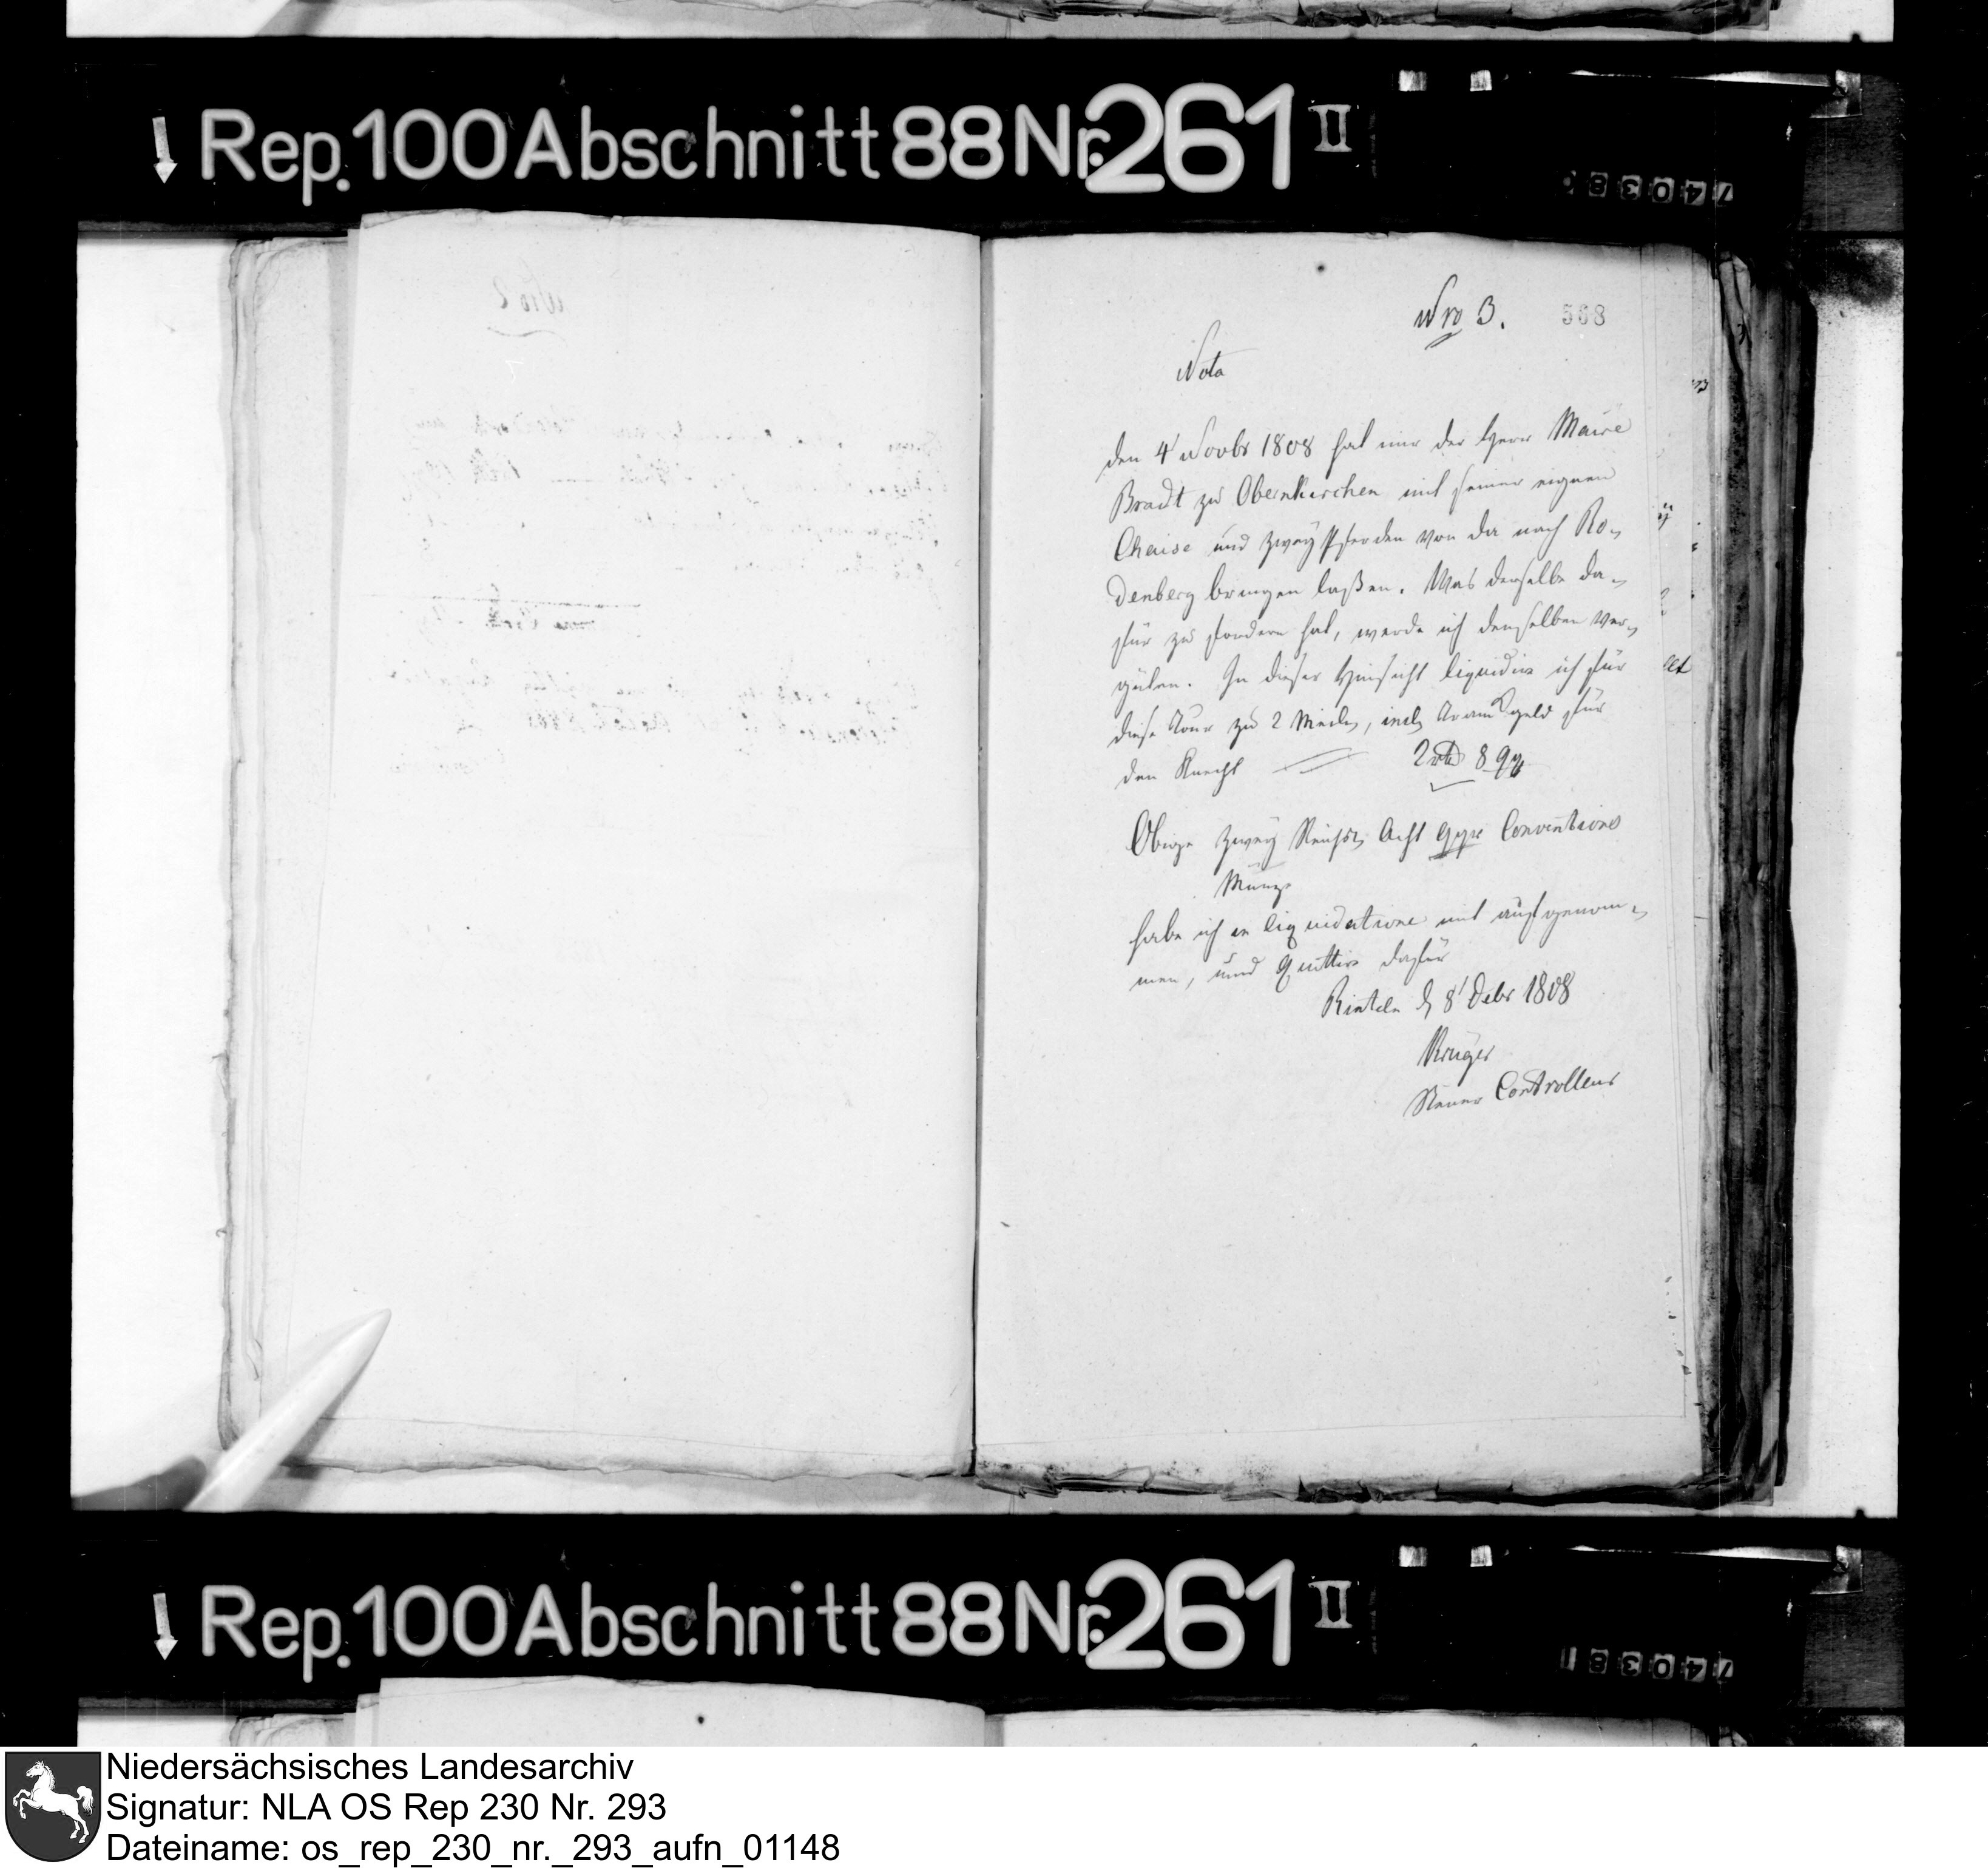 Rep. 100 Abschnitt 88 Nr. 261 II
74038
Nro 3.
568
Nota
den 4' Novbr 1808 hat mir der Herr Maire
Bradt zu Obernkirchen mit seiner eignen
Chaise und zwey Pferden von da nach Ro-
denberg bringen laßen. Was derselbe da-
für zu fordern hat, werde ich demselben ver-
güten. In dieser Hinsicht liquidire ich für
diese Tour zu 2 Meilen, incl. geld für
den Knecht 2 rthl 8 ggr
Obige zwey Reichsthl. Acht ggr Conventions
Münze
habe ich in liquidatione mit aufgenom-
men, und quittire dafür
Rinteln d. 8' Debr 1808
Krüger
Steuer Controlleur
Rep. 100 Abschnitt 88 Nr. 261 II
740381
Niedersächsisches Landesarchiv
Signatur: NLA OS Rep 230 Nr. 293
Dateiname: os_rep_230_nr._293_aufn_01148